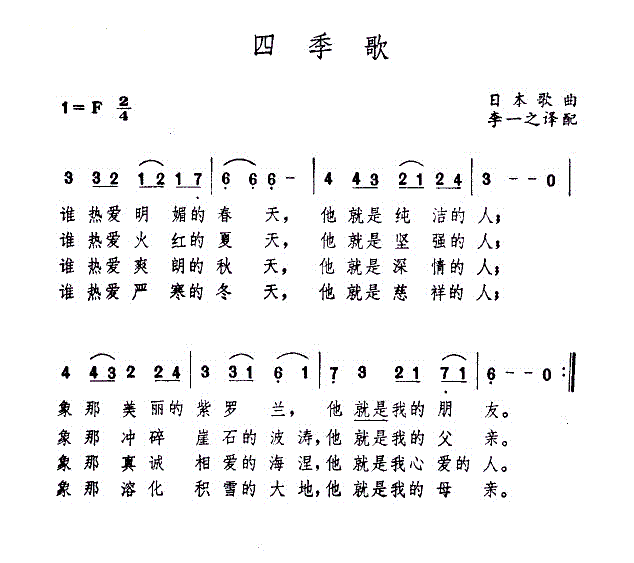 四 季 歌
1=F 2/4
日本歌曲
李一之译配
3 32 12 17 | 6 6 6 - | 4 43 21 24 | 3 - - 0 |
谁热爱明媚的春天，他就是纯洁的人；
谁热爱火红的夏天，他就是坚强的人；
谁热爱爽朗的秋天，他就是深情的人；
谁热爱严寒的冬天，他就是慈祥的人；
4 43 2 24 | 3 31 6 1 | 7 3 21 71 | 6 - - 0 :||
象那美丽的紫罗兰，他就是我的朋友。
象那冲碎崖石的波涛，他就是我的父亲。
象那真诚相爱的海涅，他就是我心爱的人。
象那溶化积雪的大地，他就是我的母亲。